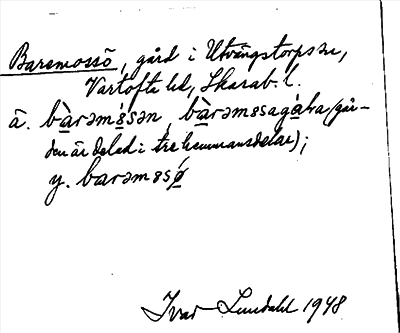 Baremossö, gård i Utvängstorps sn,
Vartofta hd, Skarab. l.
ä. bàrəmɞ́sən, bàrəmɞsagáḷa (går-
den är delad i tre hemmansdelar);
y. barəmɞsǿ
Ivar Lundahl 1948